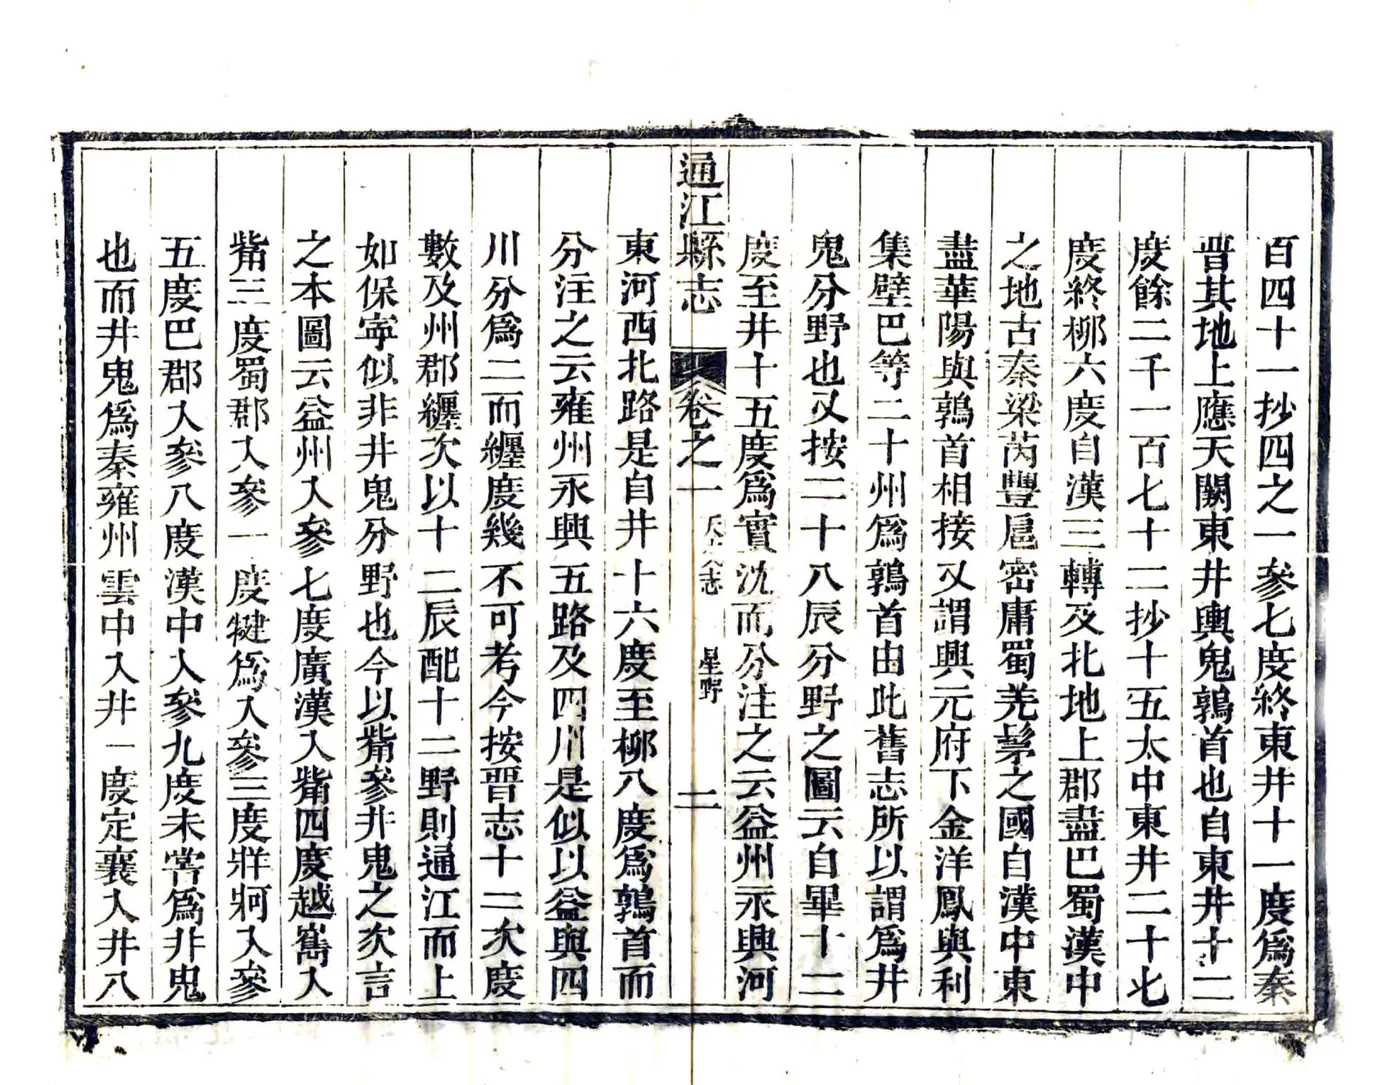 百四十一抄四之一參七度終東井十一度爲秦
晋其地上應天闕東井輿鬼鶉首也自東井十二
度餘二千一百七十二抄十五太中東井二十七
度終柳六度自漢三轉及北地上郡盡巴蜀漢中
之地古秦梁芮豐扈密庸蜀羌髳之國自漢中東
盡華陽與鶉首相接又謂興元府下金洋鳳與利
集壁巴等二十州爲鶉首由此舊志所以謂爲井
鬼分野也又按二十八辰分野之圖云自畢十二
度至井十五度爲實沈而分注之云益州永興河
通江縣志 卷之一 天文志 星野 二
東河西北路是自井十六度至柳八度爲鶉首而
分注之云雍州永興五路及四川是似以益與四
川分爲二而纒度幾不可考今按晋志十二次度
數及州郡纒次以十二辰配十二野則通江而上
如保寧似非井鬼分野也今以觜參井鬼之次言
之本圖云益州入參七度廣漢入觜四度越嶲入
觜三度蜀郡入參一度犍爲入參三度牂牁入參
五度巴郡入參八度漢中入參九度未嘗爲井鬼
也而井鬼爲秦雍州雲中入井一度定襄入井八